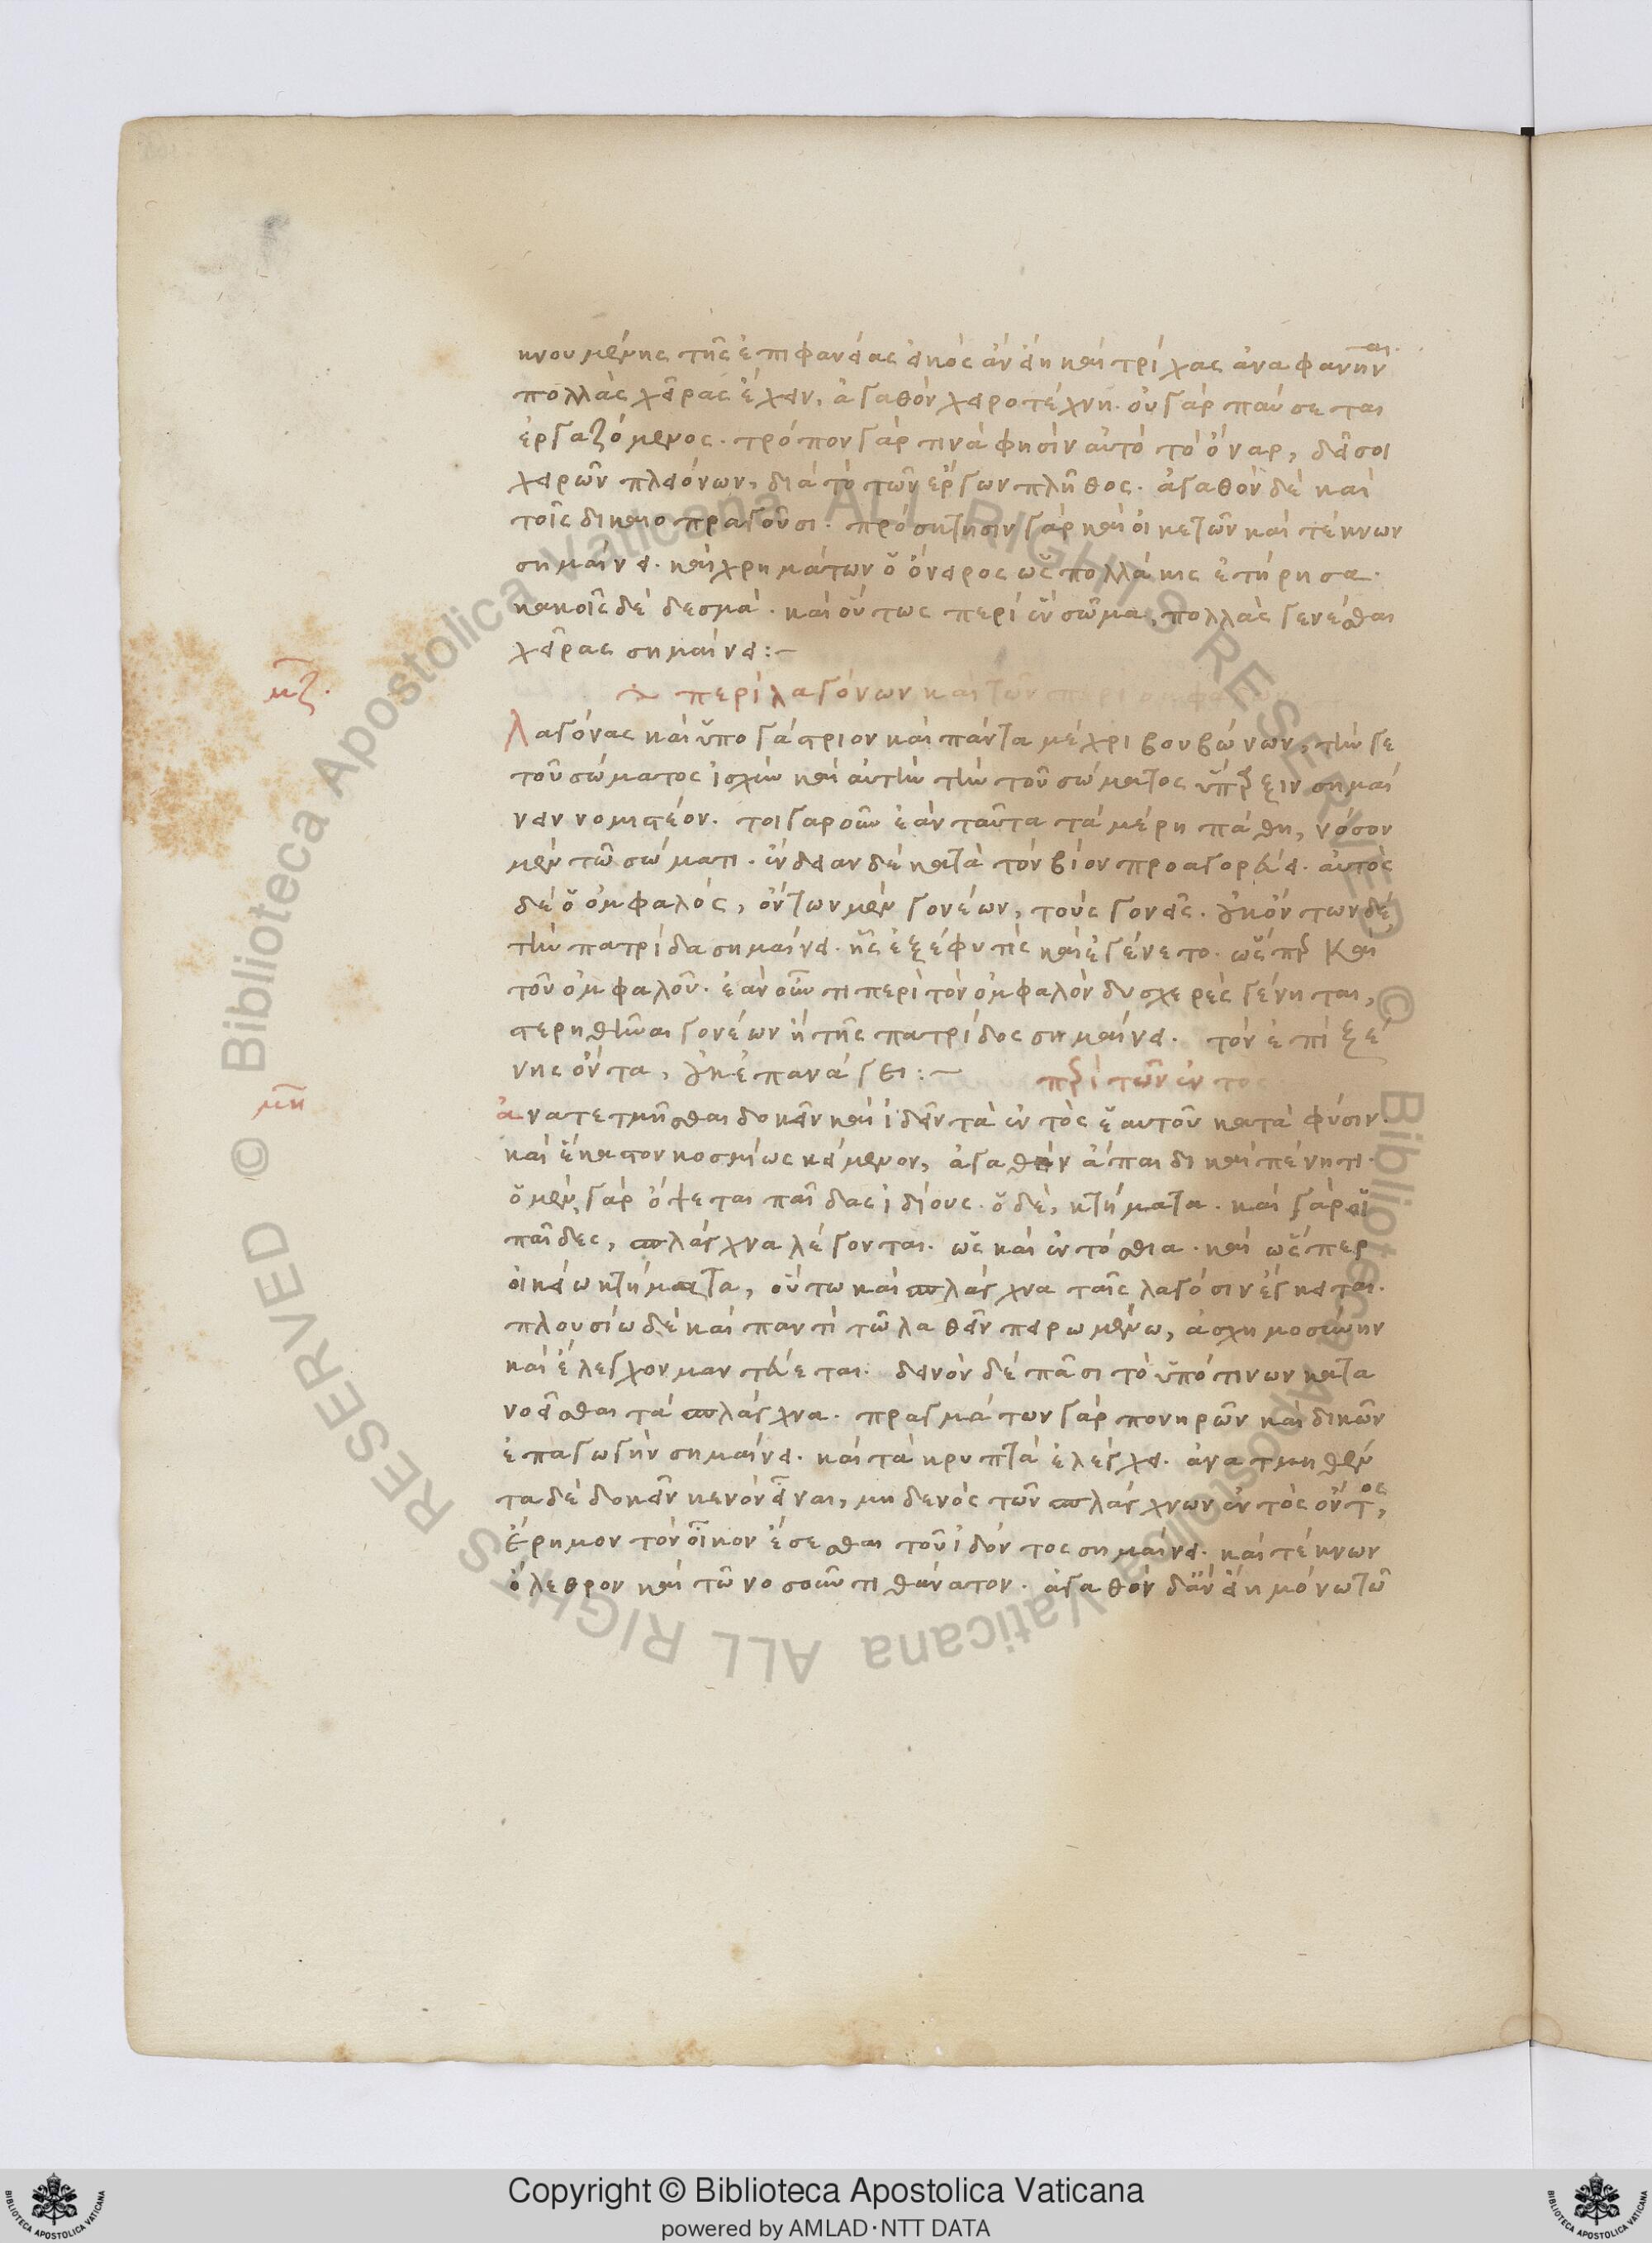 κνουμένης τῆς ἐπιφανείας εἰκὸς ἂν εἴη καὶ τρίχας ἀναφανῆναι.
πολλὰς χεῖρας ἔχειν, ἀγαθὸν χειροτέχνῃ. οὐ γὰρ παύσεται
ἐργαζόμενος. τρόπον γάρ τινά φησὶν αὐτὸ τὸ ὄναρ, δεῖ σοι
χειρῶν πλειόνων, διὰ τὸ τῶν ἔργων πλῆθος. ἀγαθὸν δὲ καὶ
τοῖς δικαιοπραγοῦσι. πρόσκτησιν γὰρ καὶ οἰκετῶν καὶ τέκνων
σημαίνει. καὶ χρημάτων ὁ ὄνειρος ὡς πολλάκις ἐτήρησα.
κακοῖς δὲ δεσμά. καὶ οὕτως περὶ ἓν σῶμα, πολλὰς γενέσθαι
χεῖρας σημαίνει:~
μζ.
περὶ λαγόνων καὶ τῶν περὶ
Λαγόνας καὶ ὑπογάστριον καὶ πάντα μέχρι βουβώνων, τήν γε
τοῦ σώματος ἰσχὺν καὶ αὐτὴν τὴν τοῦ σώματος ὕπαρξιν σημαί
νειν νομιστέον. τοιγαροῦν ἐὰν ταῦτα τὰ μέρη πάθῃ, νόσον
μὲν τῶ σώματι. ἔνδειαν δὲ κατὰ τὸν βίον προαγορεύει. αὐτὸς
δὲ ὁ ὀμφαλός, ὄντων μὲν γονέων, τοὺς γονεῖς. οὐκ ὄντων δὲ
τὴν πατρίδα σημαίνει. ἧς ἐξέφυ τις καὶ ἐγένετο. ὥσπερ καὶ
τοῦ ὀμφαλοῦ. ἐὰν οὖν τι περὶ τὸν ὀμφαλὸν δυσχερὲς γένηται,
στερηθῆναι γονέων ἢ τῆς πατρίδος σημαίνει. τὸν ἐπὶ ξέ
νης ὄντα, οὐκ ἐπανάγει:~ περὶ τῶν ἐντος
μη
ἀνατετμῆσθαι δοκεῖν καὶ ἰδεῖν τὰ ἐντὸς ἑαυτοῦ κατὰ φύσιν.
καὶ ἕκαστον κοσμίως κείμενον, ἀγαθὸν ἄπαιδι καὶ πένητι.
ὁ μὲν γὰρ ὄψεται παῖδας ἰδίους. ὁ δὲ, κτήματα. καὶ γὰρ οἱ
παῖδες, σπλάγχνα λέγονται. ὡς καὶ ἐντόσθια. καὶ ὥσπερ
οἰκείω κτήματα, οὕτω καὶ σπλάγχνα ταῖς λαγόσιν ἔγκειται.
πλουσίω δὲ καὶ παντὶ τῶ λαθεῖν πειρωμένω, ἀσχημοσύνην
καὶ ἔλεγχον μαντεύεται. δεινὸν δὲ πᾶσι τὸ ὑπό τινων κατα
νοεῖσθαι τὰ σπλάγχνα. πραγμάτων γὰρ πονηρῶν καὶ δικῶν
ἐπαγωγὴν σημαίνει. καὶ τὰ κρυπτὰ ἐλέγχει. ἀνατμηθέν
τα δὲ δοκεῖν κενὸν εἶναι, μηδενὸς τῶν σπλάγχνων ἐντὸς ὄντος,
ἔρημον τὸν οἶκον ἔσεσθαι τοῦ ἰδόντος σημαίνει. καὶ τέκνων
ὄλεθρον καὶ τῶ νοσοῦντι θάνατον. ἀγαθὸν δ' ἂν εἴη μόνω τῶ
Copyright © Biblioteca Apostolica Vaticana
powered by AMLAD·NTT DATA